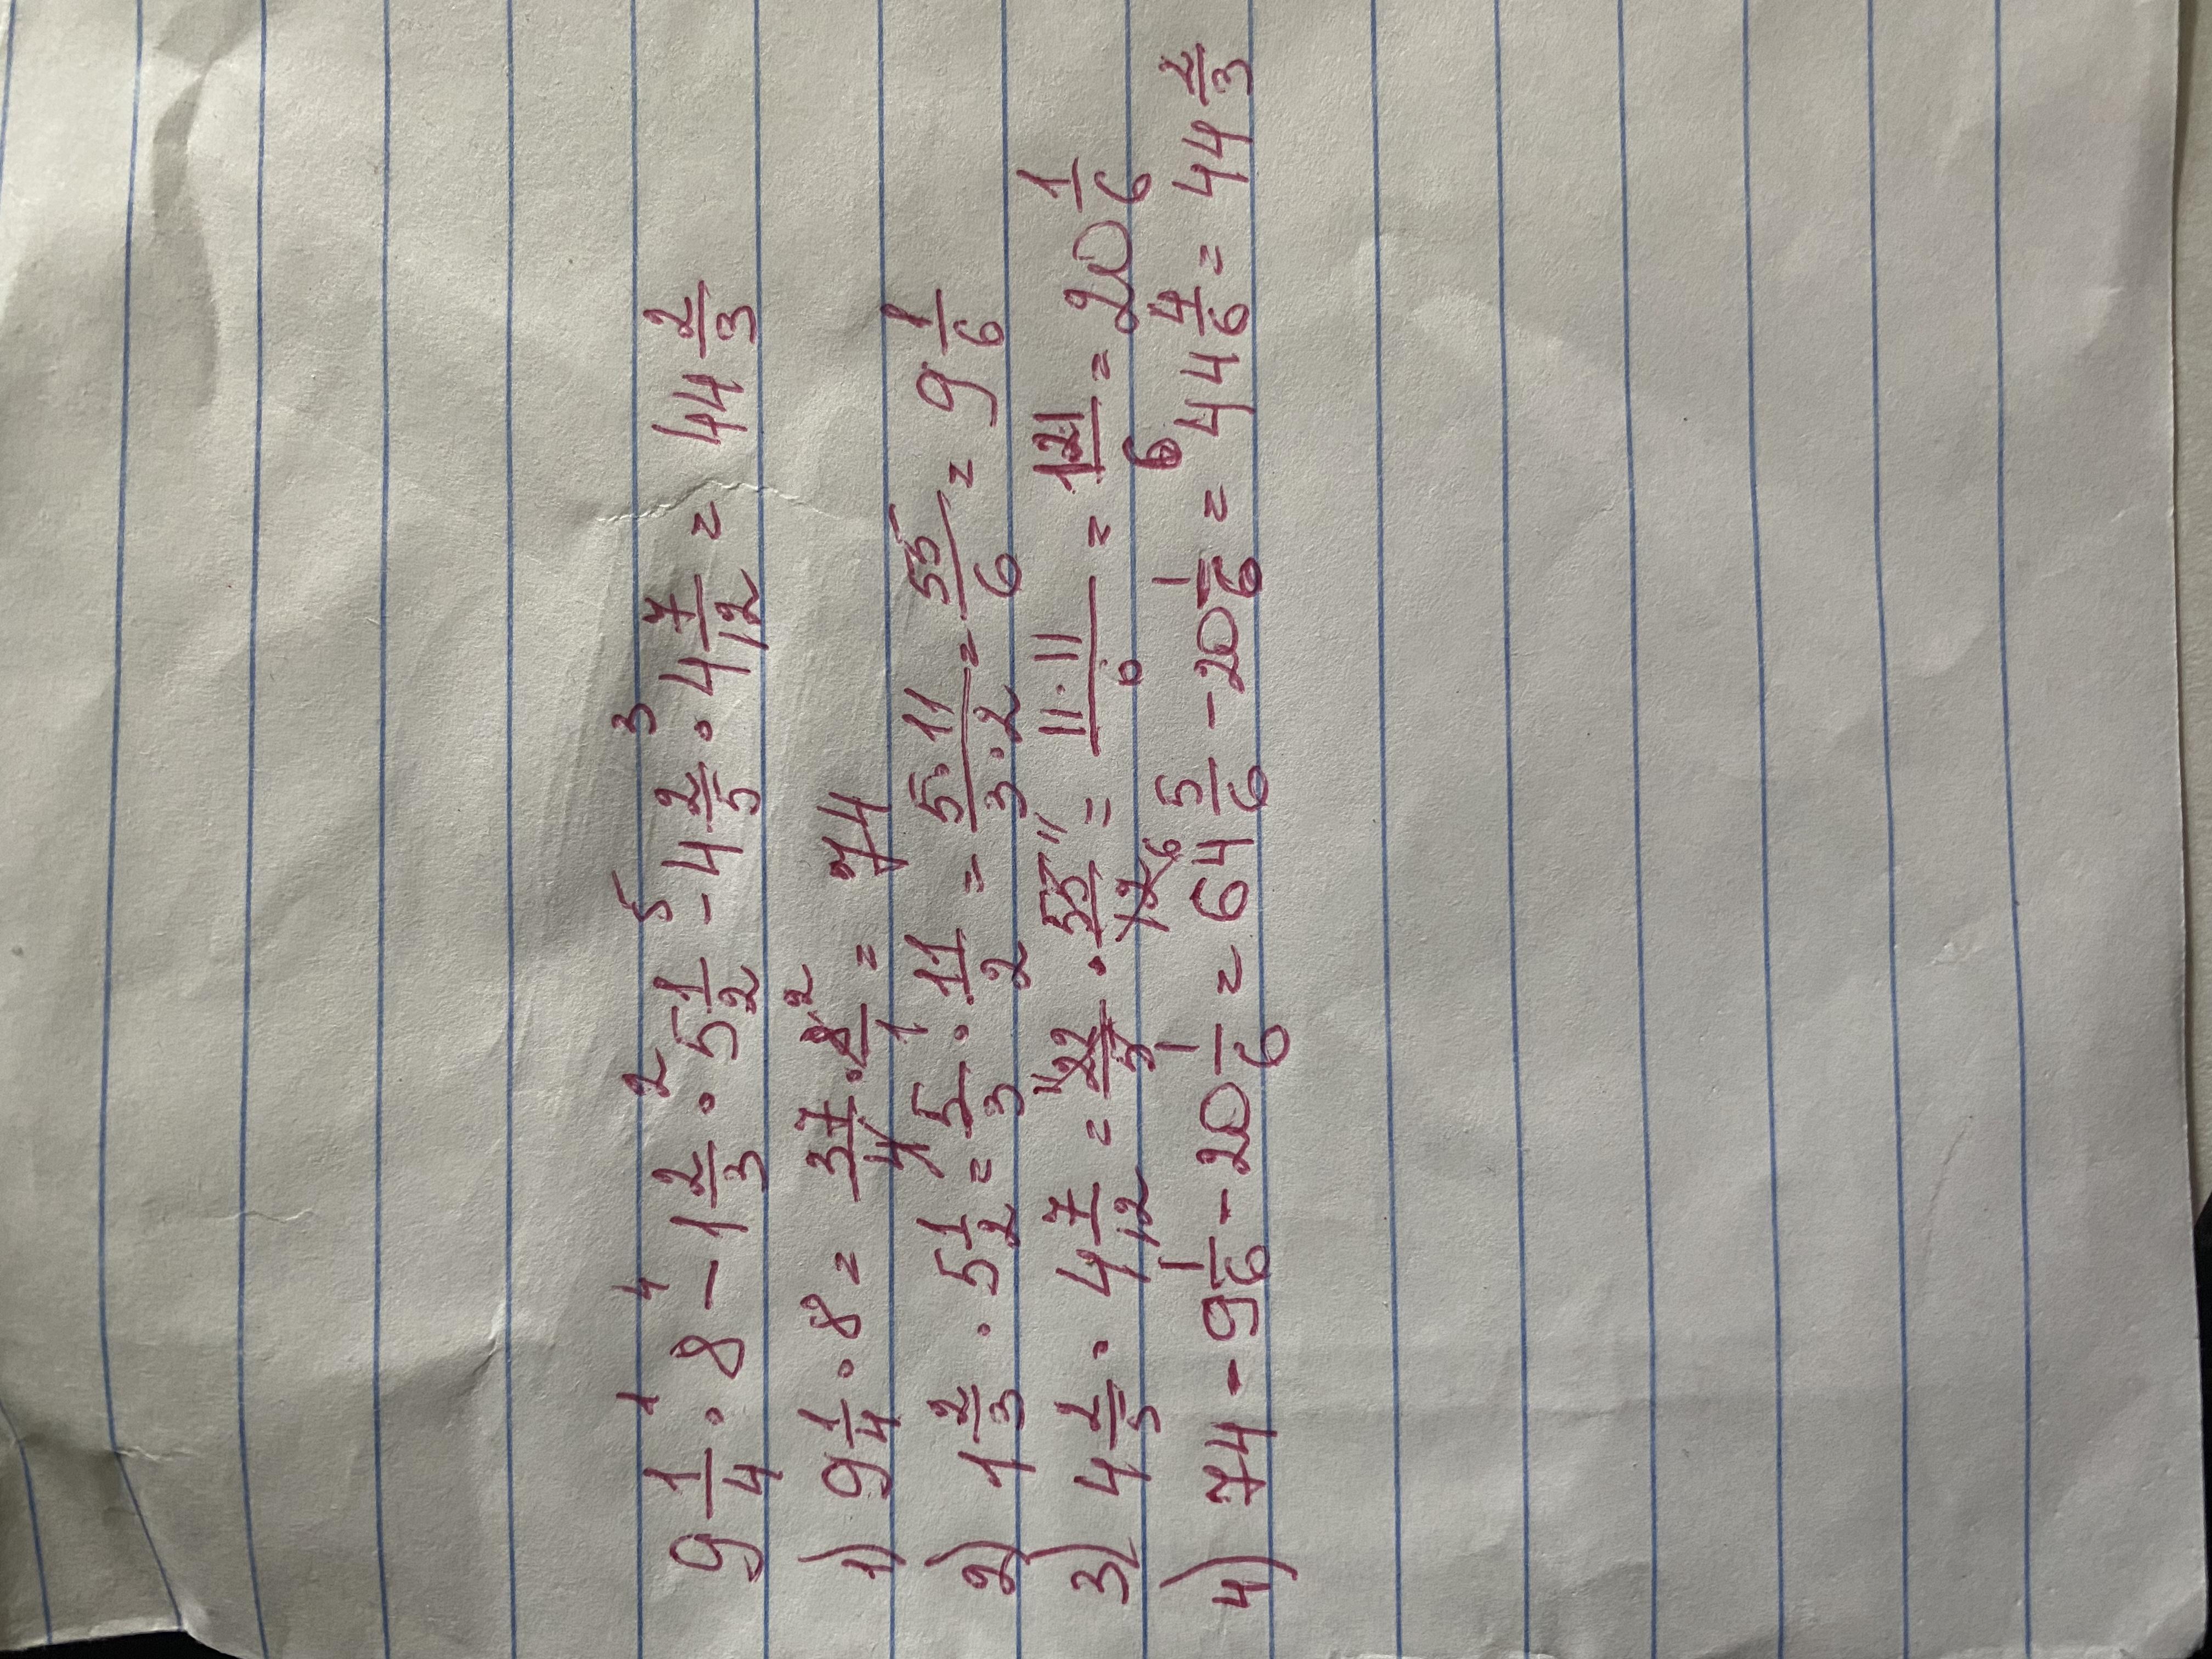 9 1/4 ·¹ 8 -⁴ 1 2/3 ·² 5 1/2 -⁵ 4 2/5 ·³ 4 7/12 = 44 2/3
1) 9 1/4 · 8 = 37/4 · 8²/1 = 74
2) 1 2/3 · 5 1/2 = 5/3 · 11/2 = 5·11/3·2 = 55/6 = 9 1/6
3) 4 2/5 · 4 7/12 = ¹¹22/5₁ · 55¹¹/12₆ = 11·11/6 = 121/6 = 20 1/6
4) 74 - 9 1/6 - 20 1/6 = 64 5/6 - 20 1/6 = 44 4/6 = 44 2/3